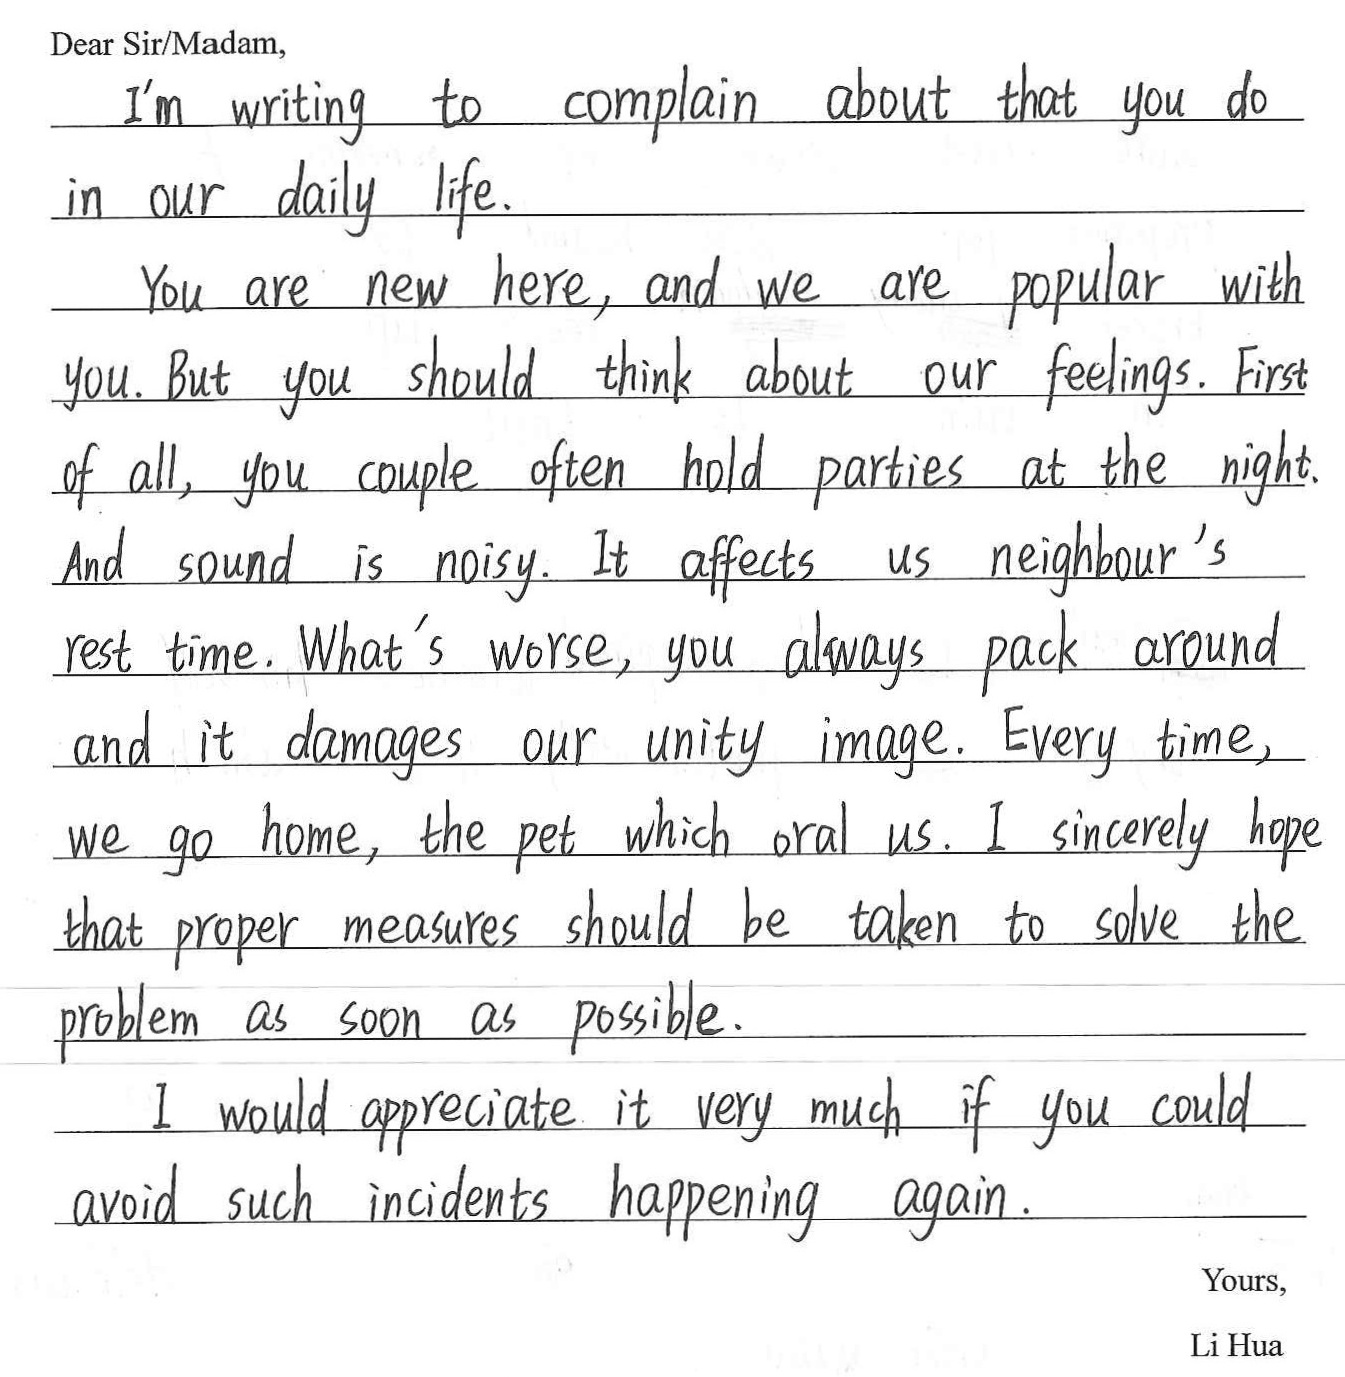 Dear Sir/Madam,
I'm writing to complain about that you do
in our daily life.
You are new here, and we are popular with
you. But you should think about our feelings. First
of all, you couple often hold parties at the night.
And sound is noisy. It affects us neighbour's
rest time. What's worse, you always pack around
and it damages our unity image. Every time,
we go home, the pet which oral us. I sincerely hope
that proper measures should be taken to solve the
problem as soon as possible.
I would appreciate it very much if you could
avoid such incidents happening again.
Yours,
Li Hua